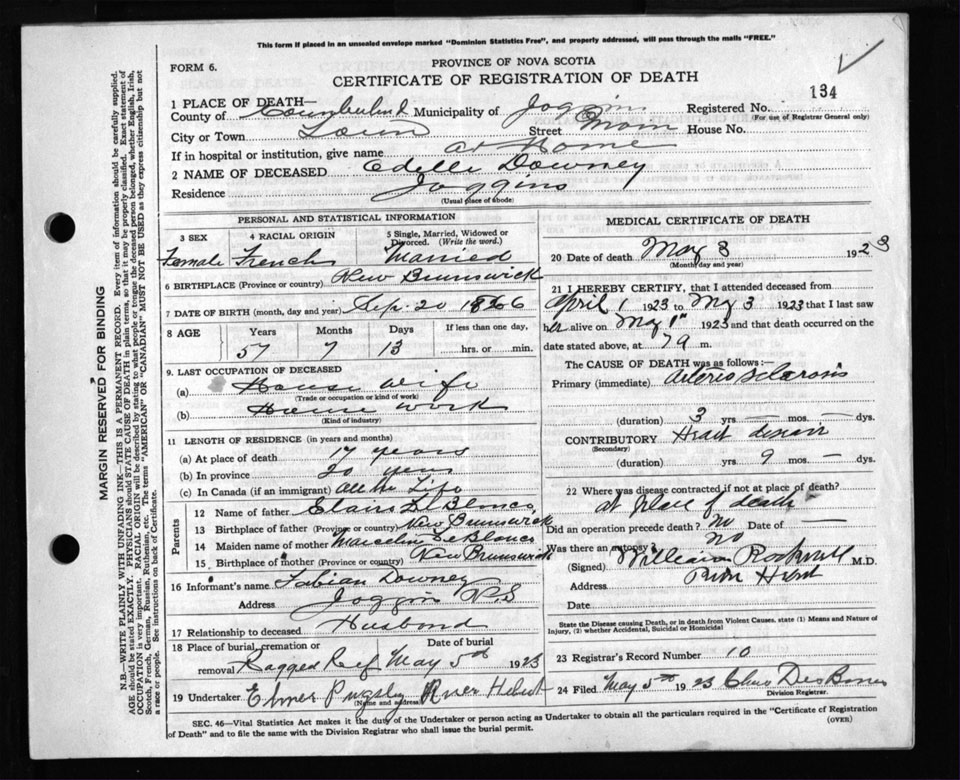 This form if placed in an unsealed envelope marked "Dominion Statistics Free", and properly addressed, will pass through the mails "FREE."
FORM 6.
PROVINCE OF NOVA SCOTIA
CERTIFICATE OF REGISTRATION OF DEATH
134
1 PLACE OF DEATH—
County of Cumberland Municipality of Joggins Registered No.
(For use of Registrar General only)
City or Town Town Street House No.
If in hospital or institution, give name at Home
2 NAME OF DECEASED Edelle Downey
Residence Joggins
(Usual place of abode)
PERSONAL AND STATISTICAL INFORMATION
3 SEX Female
4 RACIAL ORIGIN French
5 Single, Married, Widowed or Divorced. (Write the word.) Married
6 BIRTHPLACE (Province or country) New Brunswick
7 DATE OF BIRTH (month, day and year) Sep. 20
8 AGE Years Months Days If less than one day,
57 7 13 hrs. or min.
9. LAST OCCUPATION OF DECEASED
(a) House wife
(Trade or occupation or kind of work)
(b) House work
(Kind of industry)
11 LENGTH OF RESIDENCE (in years and months)
(a) At place of death 17 years
(b) In province 20 years
(c) In Canada (if an immigrant) all the Life
Parents
12 Name of father
13 Birthplace of father (Province or country) New Brunswick
14 Maiden name of mother
15 Birthplace of mother (Province or country) New Brunswick
16 Informant's name Fabian Downey
Address Joggins N.S
17 Relationship to deceased Husbond
18 Place of burial, cremation or removal Ragged Reef Date of burial May 5th 1923
19 Undertaker Elmer Pugsley River Hebert
(Name and address)
MEDICAL CERTIFICATE OF DEATH
20 Date of death May 3 1923
(Month, day and year)
21 I HEREBY CERTIFY, that I attended deceased from
April 1 1923 to May 3 1923 that I last saw
her alive on May 1st 1923 and that death occurred on
date stated above, at 7 a m.
The CAUSE OF DEATH was as follows:
Primary (immediate) Arterio Sclerosis
(duration) 3 yrs — mos. — dys.
CONTRIBUTORY Heart
(Secondary)
(duration) 9 yrs. — mos. — dys.
22 Where was disease contracted if not at place of death?
at place of death
Did an operation precede death? No Date of —
Was there an autopsy? No
(Signed) William Rockwell M.D.
Address River Hebert
Date
State the Disease causing Death, or in death from Violent Causes. state (1) Means and Nature of
Injury, (2) whether Accidental, Suicidal or Homicidal
23 Registrar's Record Number 10
24 Filed May 5th 1923
Division Registrar.
SEC. 46—Vital Statistics Act makes it the duty of the Undertaker or person acting as Undertaker to obtain all the particulars required in the "Certificate of Registration
of Death" and to file the same with the Division Registrar who shall issue the burial permit.
(OVER)
MARGIN RESERVED FOR BINDING
N.B.—WRITE PLAINLY WITH UNFADING INK—THIS IS A PERMANENT RECORD. Every item of information should be carefully supplied.
AGE should be stated EXACTLY. PHYSICIANS should STATE CAUSE OF DEATH in plain terms, so that it may be properly classified. Exact statement of
OCCUPATION is very important. RACIAL ORIGIN will be described by stating to what people or tongue the deceased person belonged, whether English, Irish,
Scotch, French, German, Russian, Ruthenian, etc. The terms "AMERICAN" OR "CANADIAN" MUST NOT BE USED as they express citizenship but not
a race or people. See instructions on back of Certificate.